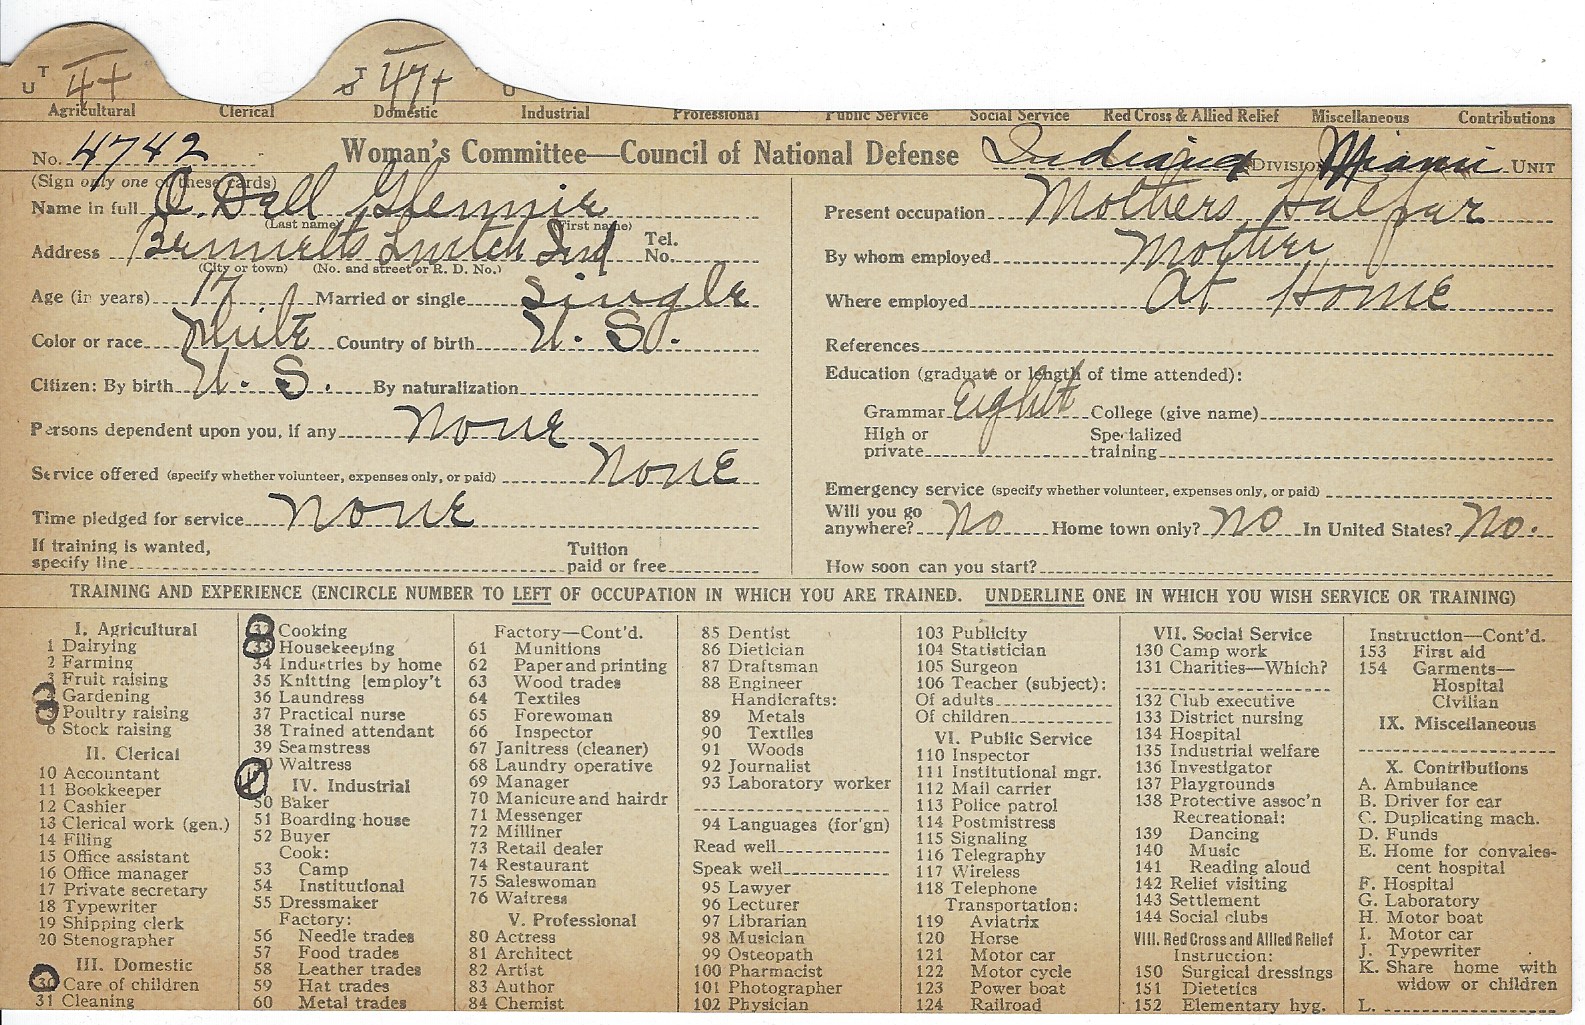 U T 4+ T 47+ U
Agricultural Clerical Domestic Industrial Professional Public Service Social Service Red Cross & Allied Relief Miscellaneous Contributions
No. 4742 Woman's Committee—Council of National Defense Indiana Division Miami Unit
(Sign only one of these cards)
Name in full O. Dell Glennie
(Last name) (First name)
Address Bennetts Switch Ind Tel. No.
(City or town) (No. and street or R. D. No.)
Age (in years) 17 Married or single Single
Color or race White Country of birth U. S.
Citizen: By birth U. S. By naturalization
Persons dependent upon you, if any None
Service offered (specify whether volunteer, expenses only, or paid) None
Time pledged for service None
If training is wanted,
specify line Tuition paid or free
Present occupation Mothers Halpur
By whom employed Mother
Where employed At Home
References
Education (graduate or length of time attended):
Grammar Eight College (give name)
High or private Specialized training
Emergency service (specify whether volunteer, expenses only, or paid)
Will you go anywhere? No Home town only? No In United States? No.
How soon can you start?
TRAINING AND EXPERIENCE (ENCIRCLE NUMBER TO LEFT OF OCCUPATION IN WHICH YOU ARE TRAINED. UNDERLINE ONE IN WHICH YOU WISH SERVICE OR TRAINING)
I. Agricultural
1 Dairying
2 Farming
3 Fruit raising
4 Gardening
5 Poultry raising
6 Stock raising
II. Clerical
10 Accountant
11 Bookkeeper
12 Cashier
13 Clerical work (gen.)
14 Filing
15 Office assistant
16 Office manager
17 Private secretary
18 Typewriter
19 Shipping clerk
20 Stenographer
III. Domestic
30 Care of children
31 Cleaning
32 Cooking
33 Housekeeping
34 Industries by home
35 Knitting [employ't
36 Laundress
37 Practical nurse
38 Trained attendant
39 Seamstress
40 Waitress
IV. Industrial
50 Baker
51 Boarding house
52 Buyer
Cook:
53 Camp
54 Institutional
55 Dressmaker
Factory:
56 Needle trades
57 Food trades
58 Leather trades
59 Hat trades
60 Metal trades
Factory—Cont'd.
61 Munitions
62 Paper and printing
63 Wood trades
64 Textiles
65 Forewoman
66 Inspector
67 Janitress (cleaner)
68 Laundry operative
69 Manager
70 Manicure and hairdr
71 Messenger
72 Milliner
73 Retail dealer
74 Restaurant
75 Saleswoman
76 Waitress
V. Professional
80 Actress
81 Architect
82 Artist
83 Author
84 Chemist
85 Dentist
86 Dietician
87 Draftsman
88 Engineer
Handicrafts:
89 Metals
90 Textiles
91 Woods
92 Journalist
93 Laboratory worker
94 Languages (for'gn)
Read well
Speak well
95 Lawyer
96 Lecturer
97 Librarian
98 Musician
99 Osteopath
100 Pharmacist
101 Photographer
102 Physician
103 Publicity
104 Statistician
105 Surgeon
106 Teacher (subject):
Of adults
Of children
VI. Public Service
110 Inspector
111 Institutional mgr.
112 Mail carrier
113 Police patrol
114 Postmistress
115 Signaling
116 Telegraphy
117 Wireless
118 Telephone
Transportation:
119 Aviatrix
120 Horse
121 Motor car
122 Motor cycle
123 Power boat
124 Railroad
VII. Social Service
130 Camp work
131 Charities—Which?
132 Club executive
133 District nursing
134 Hospital
135 Industrial welfare
136 Investigator
137 Playgrounds
138 Protective assoc'n
Recreational:
139 Dancing
140 Music
141 Reading aloud
142 Relief visiting
143 Settlement
144 Social clubs
VIII. Red Cross and Allied Relief
Instruction:
150 Surgical dressings
151 Dietetics
152 Elementary hyg.
Instruction—Cont'd.
153 First aid
154 Garments—
Hospital
Civilian
IX. Miscellaneous
X. Contributions
A. Ambulance
B. Driver for car
C. Duplicating mach.
D. Funds
E. Home for convales-
cent hospital
F. Hospital
G. Laboratory
H. Motor boat
I. Motor car
J. Typewriter
K. Share home with
widow or children
L.